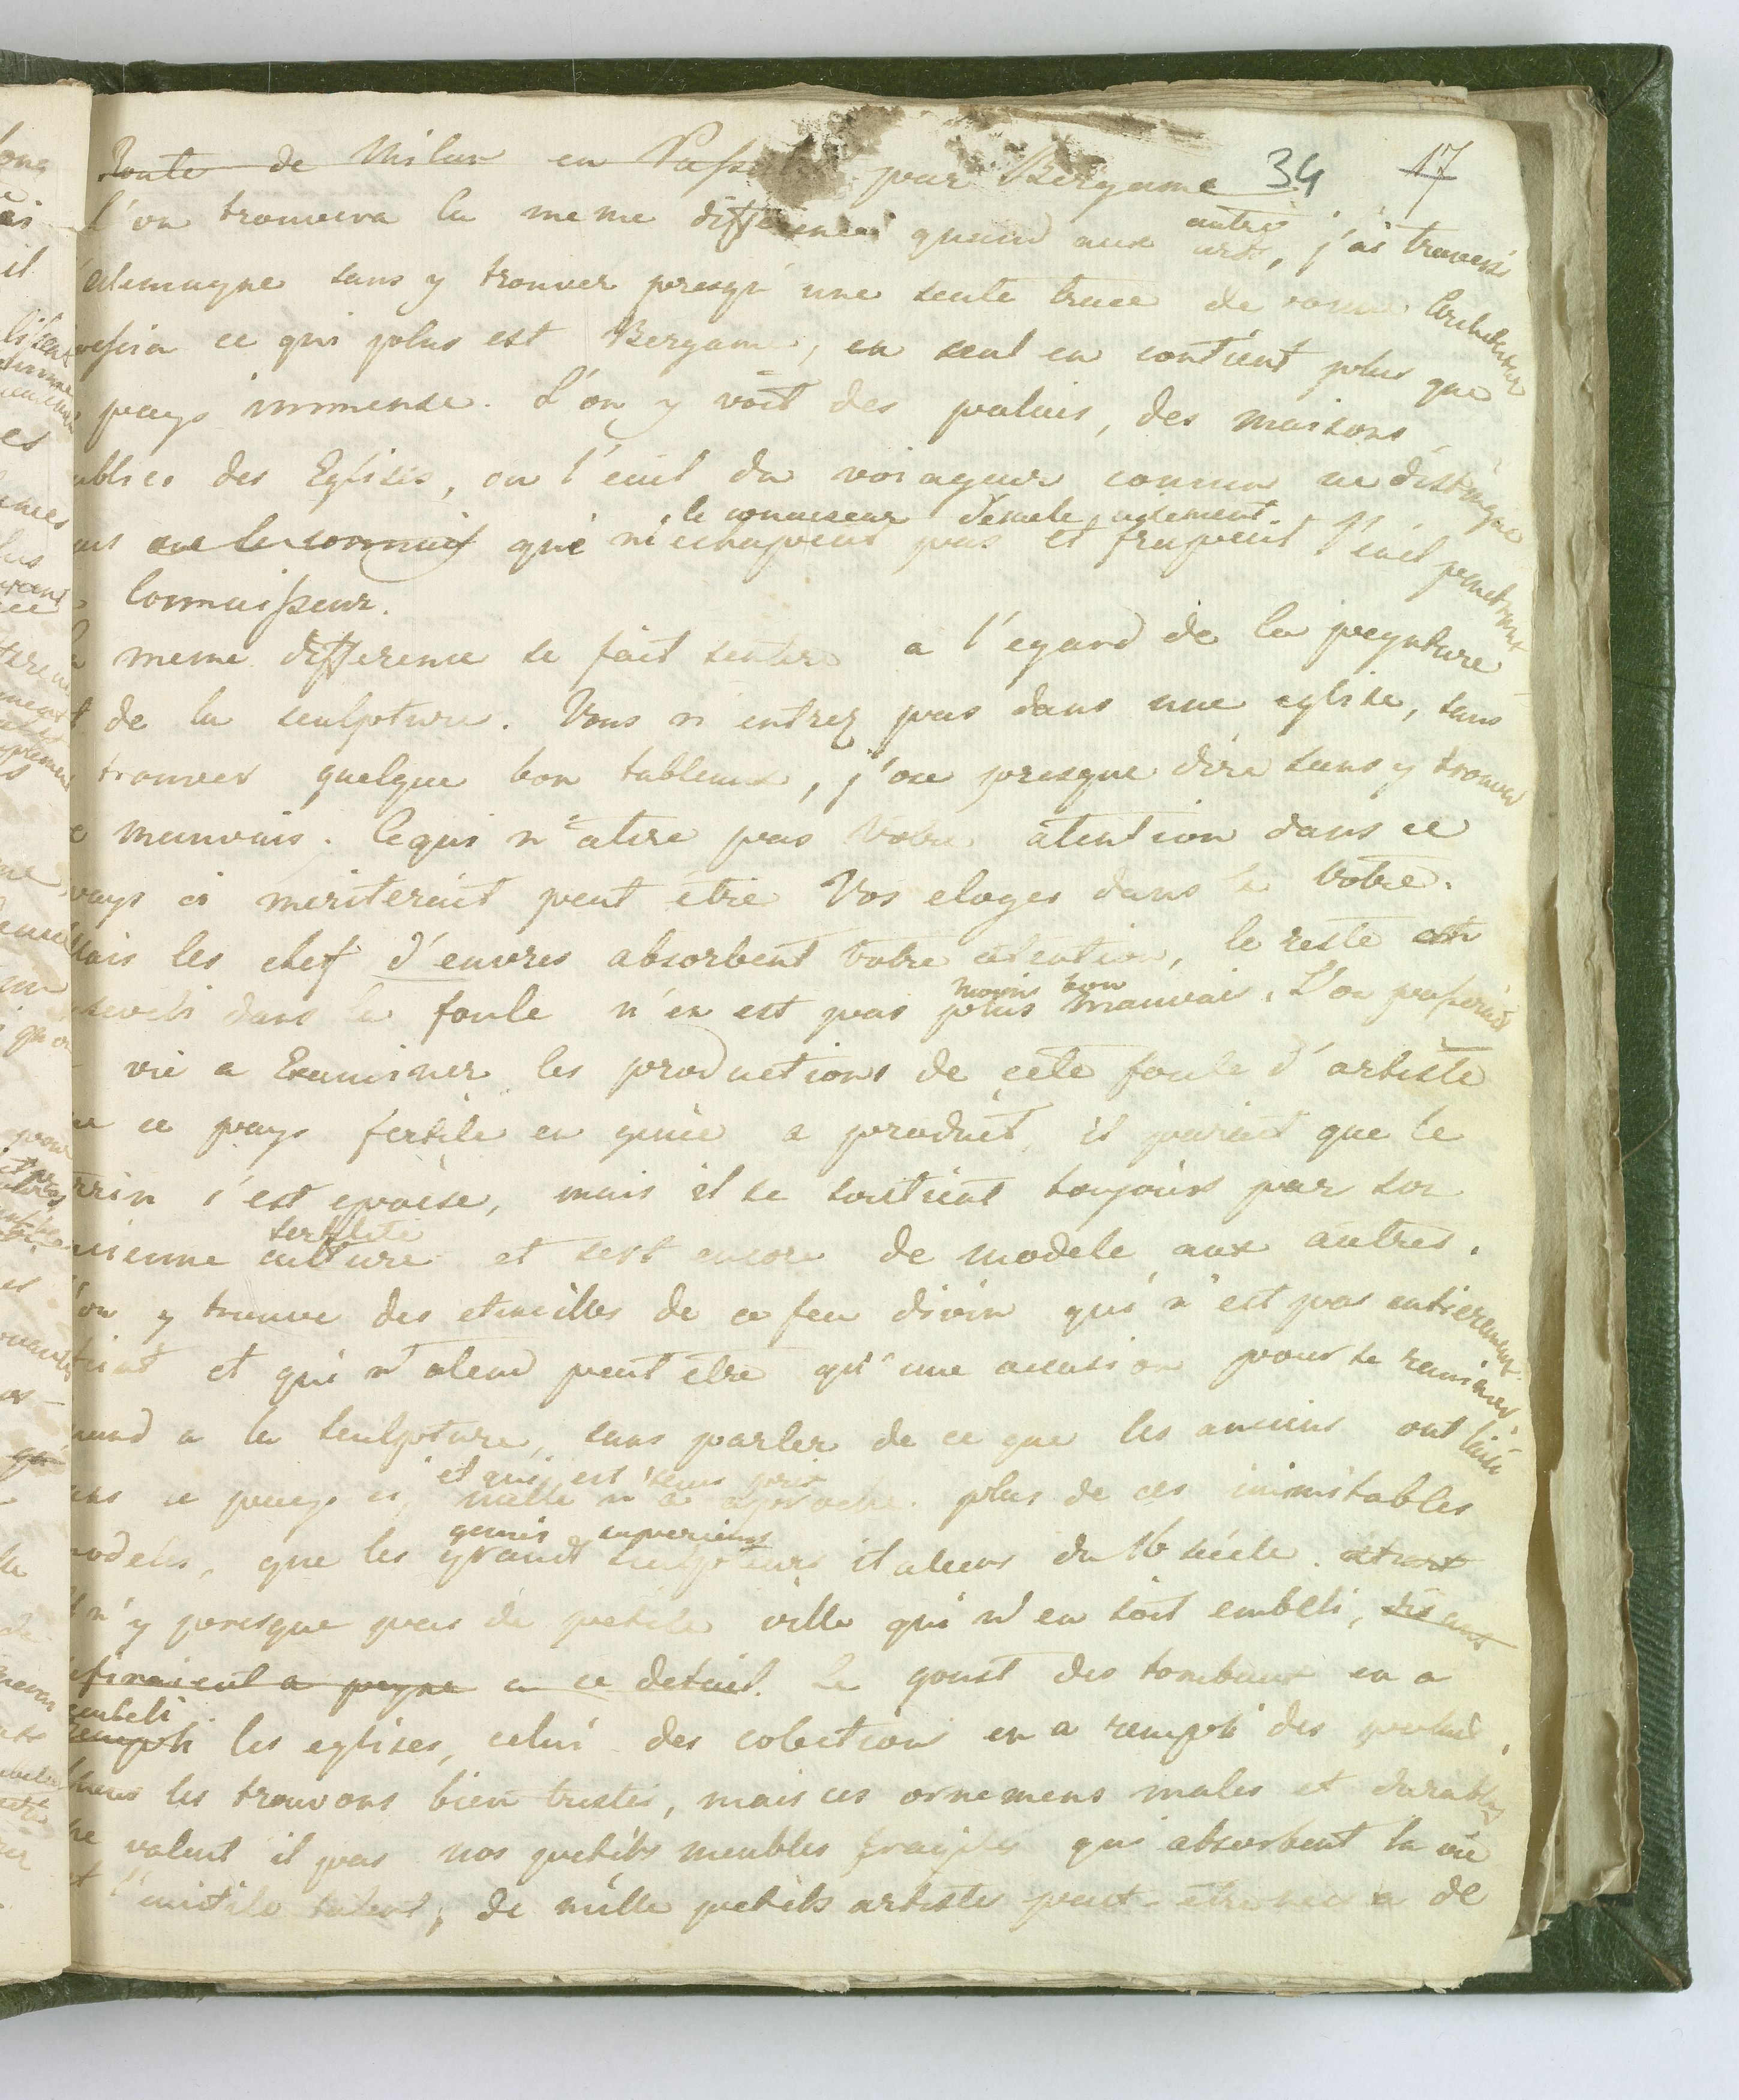 Route de Milan en par Bergame 34 17
L'on trouvera la meme difference quand aux autres arts, j'ai traversé
alemagne sans y trouver presqu'une seule trace de
ce qui plus est Bergame, en seul en contient plus que
pays immense. L'on y voit des palais, des maisons
ublics des Eglises, ou l'euil du voiageur comun ne distingue
le connaiseur demele aisement.
que n'echapent pas et frapent l'euil penetrant
Connaisseur.
meme difference se fait sentire a l'egard de la peynture
de la sculpture. Vous n'entrez pas dans une eglise, sans
trouver quelque bon tableaux, j'ose presque dire sans y trouver
mauvais. Ce qui n'atire pas votre atention dans ce
pays ci meriterait peut être Vos eloges dans le Votre.
Mais les chef d'euvres absorbent votre atention, le reste
moins bon
dans la foule n'en est pas plus mauvais. L'on passerait
vie a Examiner les productions de cete foule d'artiste
ce pays fertile en genie a produit, il parait que le
s'est epuise, mais il se soutient toujours par son
fertilité
ancienne culture et sert encore de modele aux autres.
L'on y trouve des etincilles de ce feu divin qui n'est pas entierement
et qui n'atend peut etre qu'une ocasion pour se ranimer
quand a la sculpture, sans parler de ce que les anciens ont laissé
et qui est sans prix
dans ce pays ci, nulle n'a aproché plus de ces inimitables
genies superieurs
modeles, que les grands sculpteurs italiens du 16 siécle.
n'y presque pas de petite ville qui n'en soit embeli,
a peyne a ce detail. Le goust des tombeaux en a
embeli
rempli les eglises, celui des colections en a rempli des palais,
nous les trouvons bien tristes, mais ces ornemens males et durables
ne valent il pas nos petits meubles fragiles qui absorbent la vie
et l'inutile talent, de mille petits artistes peut-etre nes a de